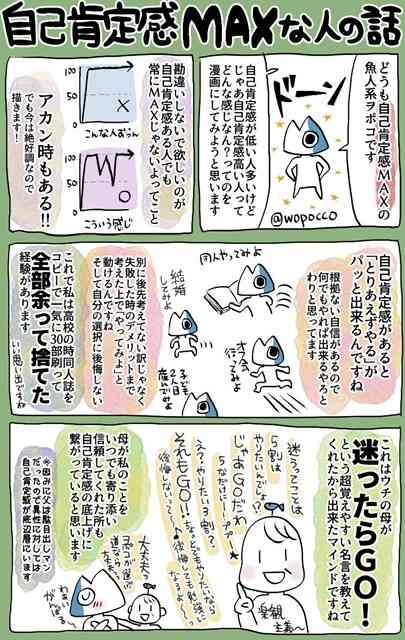 自己肯定感MAXな人の話
どうも自己肯定感MAXの
魚人系ヲポコです
ドーン
@wopocco
自己肯定感が低い人多いけど
じゃあ自己肯定感高い人って
どんな感じなん?ってのを
漫画にしてみようと思います
勘違いしないで欲しいのが
自己肯定感ある人でも
常にMAXじゃないよってこと
100
50
0
こんな人おらん
100
50
0
こういう感じ
アカン時もある!!
でも今は絶好調なので
描きます!
自己肯定感があると
「とりあえずやる」が
パッと出来るんですね
根拠ない自信があるので
何でもやれば出来るやろと
わりと思ってます
同人やってみよ
結婚
してみよ
オフ会
行ってみよ
子ども
2人目
産んでみよ
別に後先考えてない訳じゃなく
失敗した時のデメリットまで
考えた上で「やってみよ」と
動けるんですね
そして自分の選択に後悔しない
これで私は高校の時同人誌を
コピーで一気に30部刷って
全部余って捨てた
経験があります
いい思い出ですね
これはウチの母が
迷ったらGO!
という超覚えやすい名言を教えて
くれたから出来たマインドですね
迷うってことは
5割は
やりたいんでしょ?
じゃあGOだわ
5だけに!
え?やりたい3割?
それもGO!!
楽観
主義〜
母が私のことを
いつでも寄り添い
信頼してくれた所も
自己肯定感の底上げに
繋がっていると思います
大丈夫
大丈夫〜
ヲポコが選んだ
道なら
わぁい
がんばる
今回みに父は駄目出しマン
だったので異性に対しては
自己肯定感が底辺層にいます